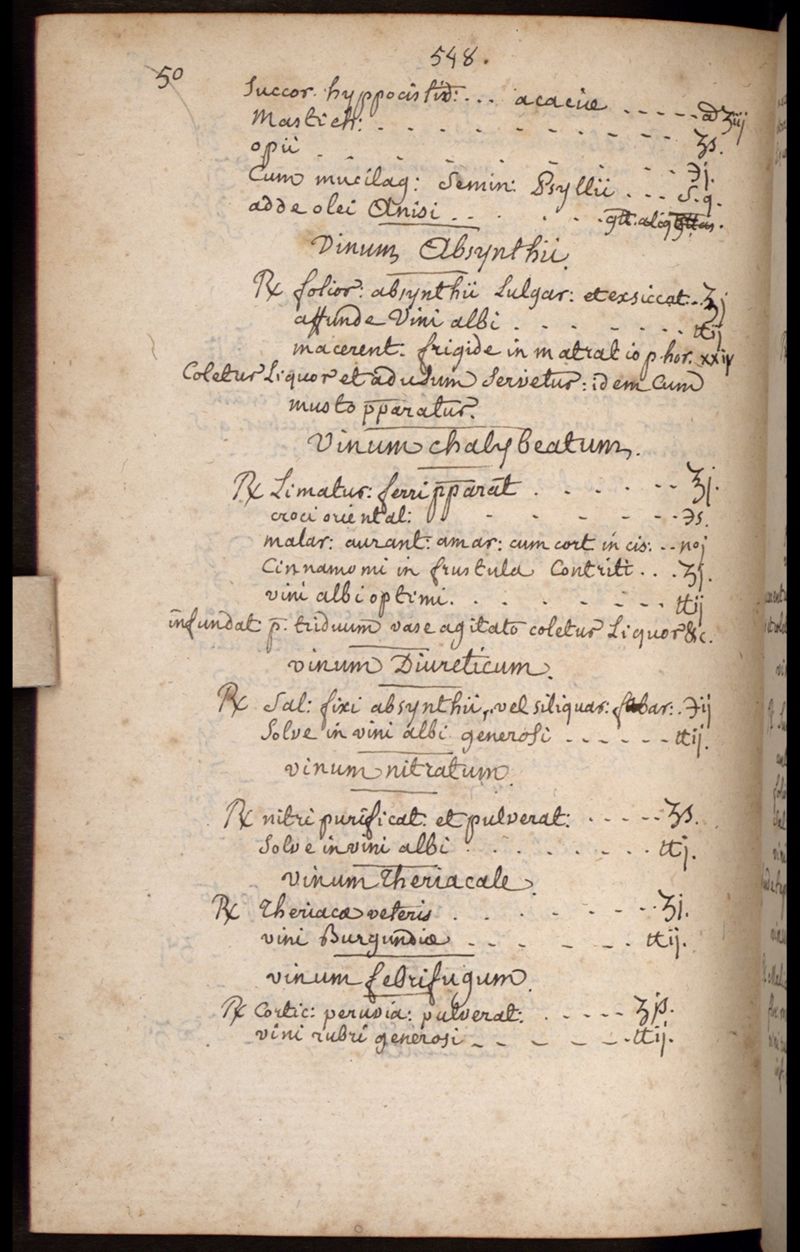 548.
50
Succor. hyppocistid: ... acaciæ - - - - - ā ʒiij
Mastich: - - - - - - - - - ʒs.
opii - - - - - - - ℈j.
Cum mucilag: Semin: Psyllii - - - S.q.
adde olei Anisi - - - - - - gtt. aliq
Vinum Absynthii.
℞ folior: absynthii Vulgar: et exsiccat. ℥j
affunde Vini albi - - - - - - - ℔ij
macerent: frigide in matratio p hor. xxiv
Coletur Liquor et ad usum Servetur: idem Cum
musto pparatur.
Vinum chalybeatum.
℞ Limatur: ferri pparat - - - - - - ℥j.
croci oriental: - - - - - - ℈s.
malar: aurant: amar: cum cort incis: - - noj
Cinnamomi in frustula Contriti - - - ʒj.
vini albi optimi. - - - - - - - ℔ij
infundat p. triduum vase agitato coletur Liquor &c.
vinum Diureticum.
℞ Sal: fixi absynthii, vel siliquar: fabar: ℈ij
Solve in vini albi generosi - - - - - - ℔ij.
vinum nitratum
℞ nitri purificat: et pulverat: - - - - - ʒs.
Solve in vini albi - - - - - - - ℔j.
vinum Theriacale.
℞ Theriacæ veteris - - - - - - - ℥j.
vini Burgundiæ - - - - - - ℔ij.
vinum febrifugum.
℞ Cortic: peruvia: pulverat: - - - - - ℥jß.
vini rubri generosi - - - - - - ℔ij.